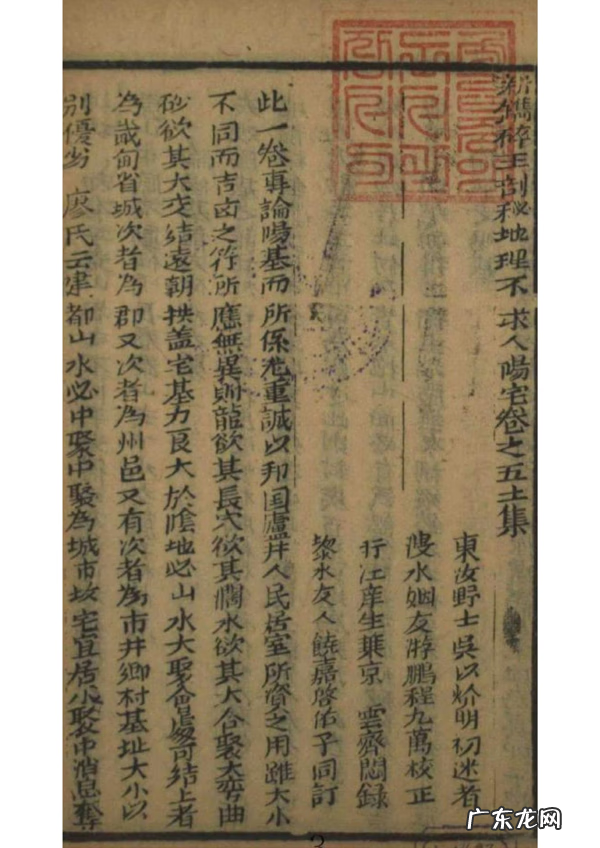 新鐫碎玉剖秘地理不求人陽宅卷之五土集
東汝野士吳以 明初述者
溲水姻友游鵬程九萬校正
行江 生 京雲齊閱錄
黎水友人饒嘉啓佑子同訂
此一卷專論陽基而所係尤重誠以邦国廬井人民居室所資之用雖大小
不同而吉凶之符所應無異則龍欲其長穴欲其濶水欲其大合聚大弯曲
砂欲其大交結遠朝拱盖宅基力量大於陰地必山水大聚會處可結上者
為畿甸省城次者為郡又次者為州邑又有次者為市井鄉村基址大小以
別優劣廖氏云建都山水必中聚中聚為城市坟宅宜居小聚中消息奪
广东龙网